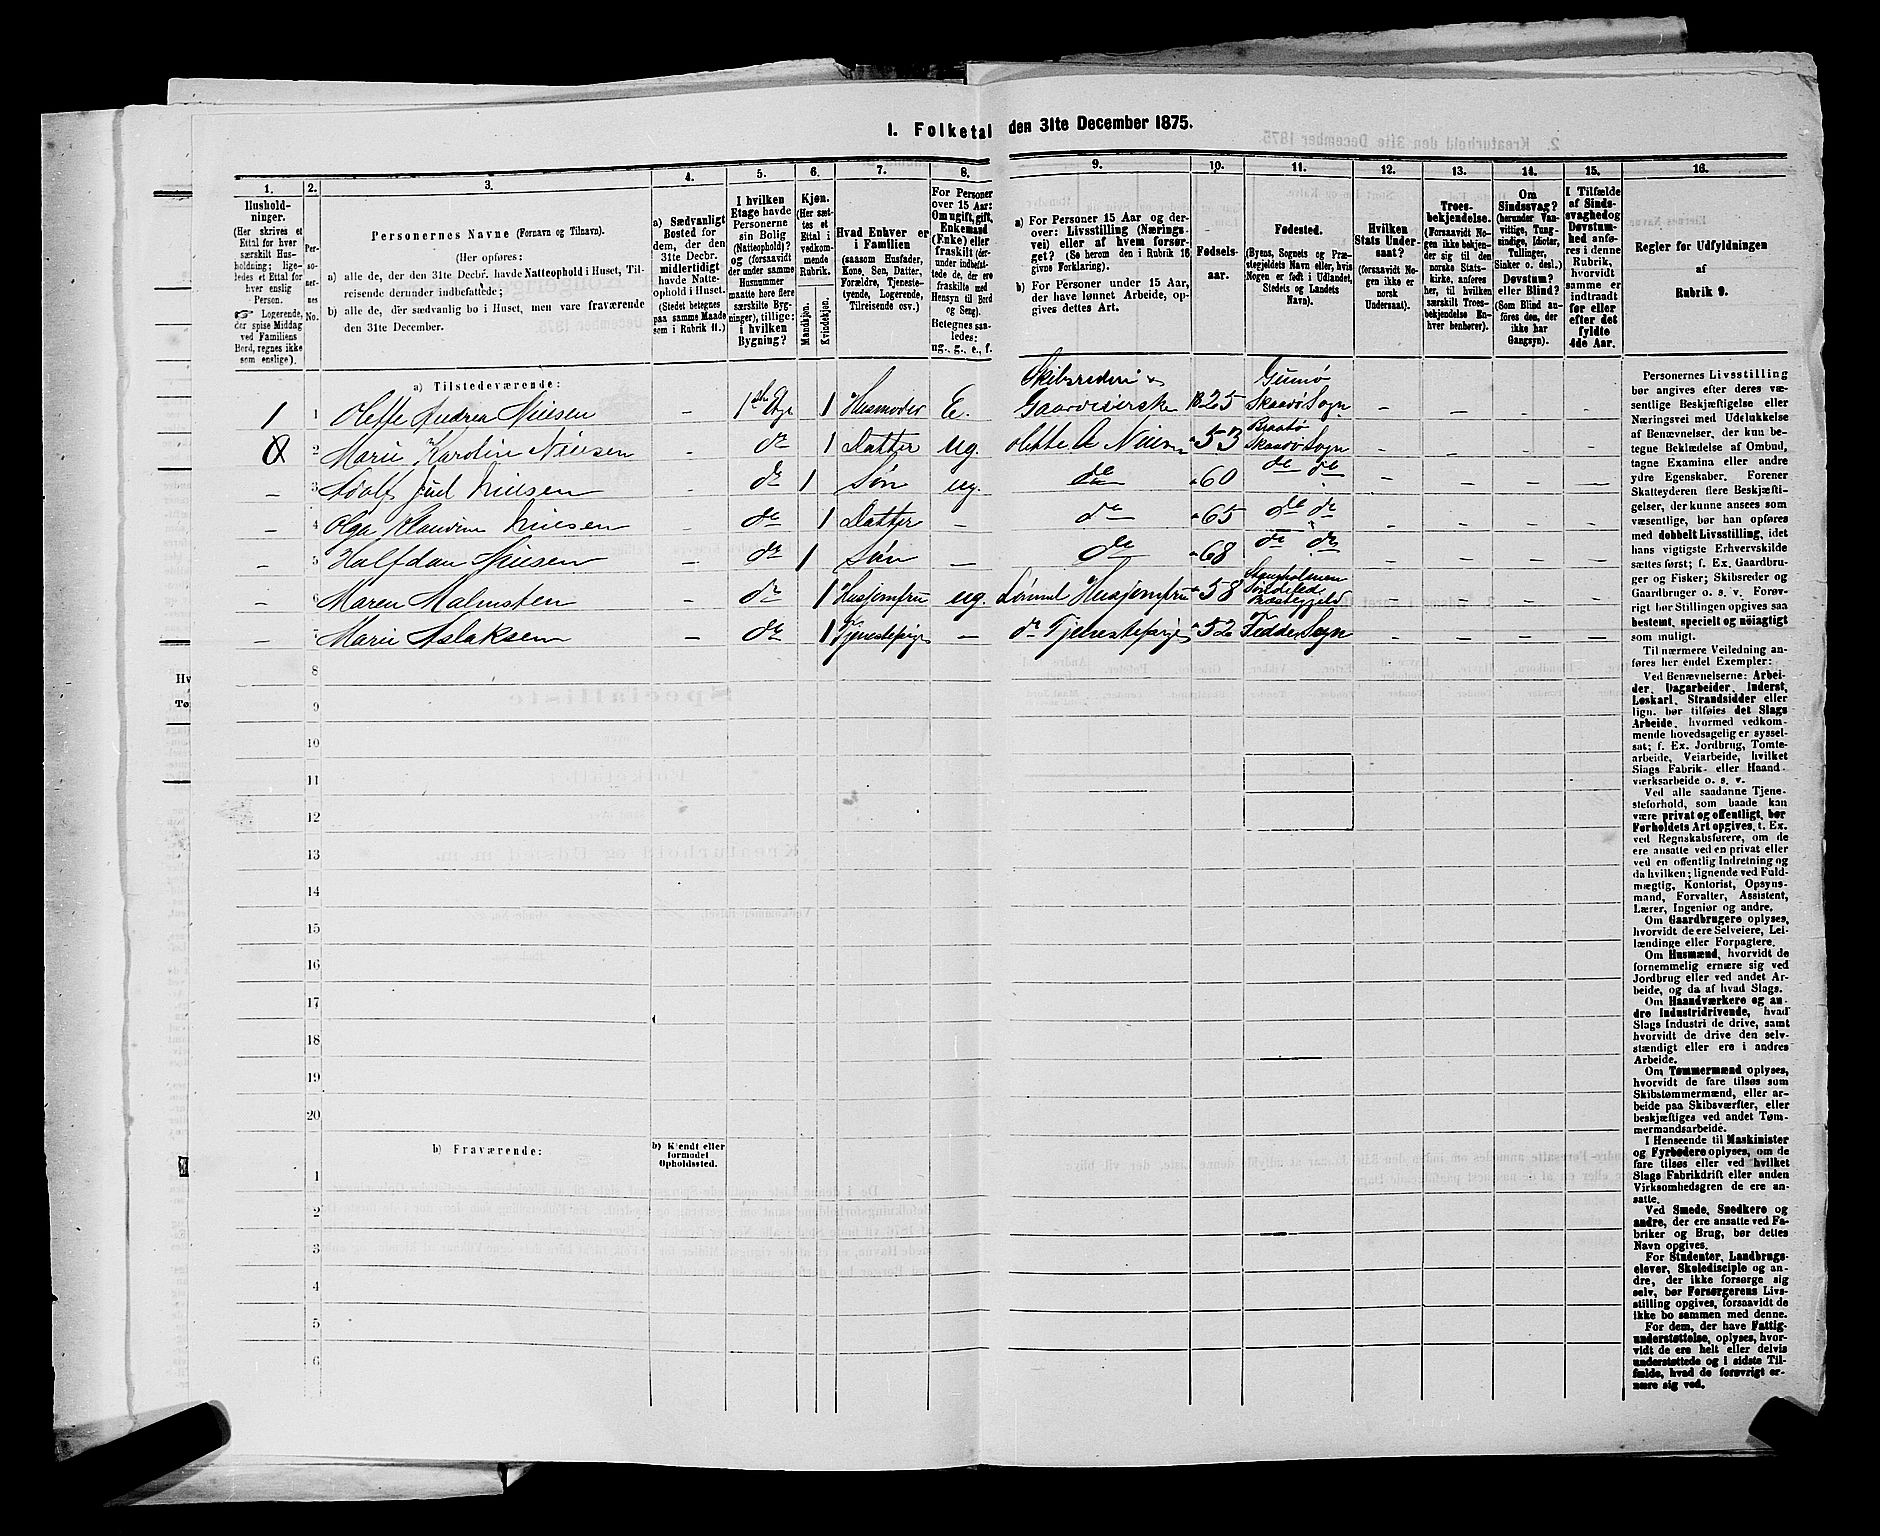 1. Folketal den 31te December 1875.
1. 2. 3. 4. 5. 6. 7. 8. 9. 10. 11. 12. 13. 14. 15. 16.
Hushold-
ninger.
(Her skrives et
Ettal for hver
særskilt Hus-
holdning; lige-
ledes et Ettal for
hver enslig
Person.
☞ Logerende,
der spise Middag
ved Familiens
Bord, regnes ikke
som enslige).
Per-
so-
ner-
nes
No.
Personernes Navne (Fornavn og Tilnavn).
(Her opføres:
a) alle de, der den 31te Decbr. havde Natteophold i Huset, Til-
reisende derunder indbefattede;
b) alle de, der sædvanlig bo i Huset, men vare fraværende
den 31te December.
a) Sædvanligt
Bosted for
dem, der den
31te Decbr.
midlertidigt
havde Natte-
ophold i Huset.
(Stedet betegnes
paa samme Maade
som i Rubrik 11.)
I hvilken
Etage havde
Personerne
sin Bolig
(Natteophold)?
og (forsaavidt
der under samme
Husnummer
maatte høre flere
særskilte Byg-
ninger), tillige:
i hvilken
Bygning?
Kjøn.
(Her sæt-
tes et
Ettal i
vedkom-
mende
Rubrik.
Mandkjøn.
Kvindekjøn.
Hvad Enhver er
i Familien
(saasom Husfader,
Kone, Søn, Datter,
Forældre, Tjeneste-
tyende, Logerende,
Tilreisende osv.)
For Personer
over 15 Aar:
Om ugift, gift,
Enkemand
(Enke) eller
fraskilt (der-
under indbefat-
tede de, der ere
fraskilte med
Hensyn til Bord
og Seng).
Betegnes saa-
ledes:
ug., g., e., f.
a) For Personer 15 Aar og der-
over: Livsstilling (Nærings-
vei) eller af hvem forsør-
get? (Se herom den i Rubrik 16
givne Forklaring).
b) For Personer under 15 Aar,
der have lønnet Arbeide, op-
gives dettes Art.
Fødsels-
aar.
Fødested.
(Byens, Sognets og Præ-
stegjeldets Navn eller, hvis
Nogen er født i Udlandet,
Stedets og Landets
Navn).
Hvilken
Stats Under-
saat?
(forsaavidt No-
gen ikke er
norsk
Undersaat).
Troes-
bekjendelse.
(Forsaavidt No-
gen ikke bekjen-
der sig til den
norske Stats-
kirke, anføres
her, til hvilken
særskilt Troes-
bekjendelse En-
hver benhører).
Om
Sindssvag?
(herunder Van-
vittige, Tung-
sindige, Idioter,
Tullinger,
Sinker o. desl.)
Døvstum?
eller Blind?
(Som Blind an-
føres den, der
ikke har
Gangsyn).
I Tilfælde
af Sinds-
svaghed og
Døvstum-
hed anfø-
res i denne
Rubrik,
hvorvidt
samme er
indtraadt
før eller
efter det
fyldte
4de Aar.
Regler for Udfyldningen
af
Rubrik 9.
a) Tilstedeværende:
1 1 Olette Andrea Nielsen – 1ste Etge 1 Husmoder E. Skibsrederi & Gaardeierske 1825 Gumø Skaadø Sogn – – – –
0 2 Marie Karoline Nielsen – do 1 Datter ug. Olette A Nielsen " 53 Braatø Skaadø Sogn – – – –
– 3 Adolf Juel Nielsen – do 1 Søn ug. do " 60 do do – – – –
– 4 Olga Klaudine Nielsen – do 1 Datter – do " 65 do do – – – –
– 5 Halfdan Nielsen – do 1 Søn – do " 68 do do – – – –
– 6 Maren Malmsten – do 1 Husjomfru ug. Lønnet Husjomfru " 58 Søndeled Præstegjeld – – – –
– 7 Marie Aslaksen – do 1 Tjenestepige – do Tjenestepige " 52 Fedde Sogn – – – –
8
9
10
11
12
13
14
15
16
17
18
19
20
b) Fraværende:
b) Kjendt eller
formodet
Opholdssted.
1
2
3
4
5
6
Personernes Livsstilling
bør angives efter deres væ-
sentlige Beskjæftigelse eller
Næringsvei med Udelukkelse
af Benævnelser, der kun be-
tegne Beklædelse af Ombud,
tagne Examina eller andre
ydre Egenskaber. Forener
Skatteyderen flere Beskjæfti-
gelser, der kunne ansees som
væsentlige, bør han opføres
med dobbelt Livsstilling, idet
hans vigtigste Erhvervskilde
sættes først; f. Ex. Gaardbru-
ger og Fisker; Skibsreder og
Gaardbruger o. s. v. Forøv-
rigt bør Stillingen opgives saa
bestemt, specielt og nøiagtigt
som muligt.
Til nærmere Veiledning an-
føres her endel Exempler:
Ved Benævnelserne: Arbei-
der, Dagarbeider, Inderst,
Løskarl, Strandsidder eller
lign. bør tilføies det Slags
Arbeide, hvormed vedkom-
mende hovedsagelig er syssel-
sat; f. Ex. Jordbrug, Tomte-
arbeide, Veiarbeide, hvilket
Slags Fabrik- eller Haand-
værksarbeide o. s. v.
Ved alle saadanne Tjene-
steforhold, som baade kan
være privat og offentligt, bør
Forholdets Art opgives, t. Ex.
ved Regnskabsførere, om de
ere ansatte ved en privat eller
ved en offentlig Indretning og
da hvilken; lignende ved Fuld-
mægtig, Kontorist, Opsyns-
mand, Forvalter, Assistent,
Lærer, Ingeniør og andre.
Om Gaardbrugere oplyses,
hvorvidt de ere Selveiere, Lei-
lændinge eller Forpagtere.
Om Husmænd, hvorvidt de
fornemmelig ernære sig ved
Jordbrug eller ved andet Ar-
beide, og da af hvad Slags.
Om Haandværkere og an-
dre Industridrivende, hvad
Slags Industri de drive, samt
hvorvidt de drive den selv-
stændigt eller ere i andres
Arbeide.
Om Tømmermænd oplyses,
hvorvidt de fare tilsøs som
Skibstømmermænd, eller ar-
beide paa Skibsværfter, eller
beskjæftiges ved andet Tøm-
mermandsarbeide.
I Henseende til Maskinister
og Fyrbødere oplyses, om de
fare tilsøs eller ved hvilket
Slags Fabrikdrift eller anden
Virksomhedsgren de ere an-
satte.
Ved Smede, Snedkere og
andre, der ere ansatte ved Fa-
briker og Brug, bør dettes
Navn opgives.
For Studenter, Landbrugs-
elever, Skoledisciple og an-
dre, der ikke forsørge sig
selv, bør Forsørgerens Livs-
stilling opgives, forsaavidt de
ikke bo sammen med denne.
For dem, der have Fattig-
understøttelse, oplyses, hvor-
vidt de ere helt eller delvis
understøttede og i sidste Til-
fælde, hvad de forøvrigt er-
nære sig ved.